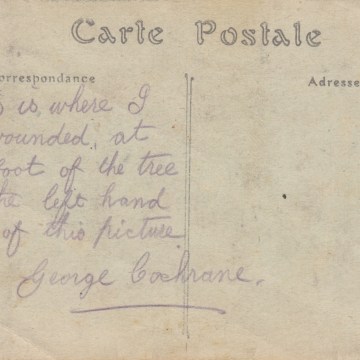 Carte Postale
orrespondance
Adresse
s is, where I
wounded, at
foot of the tree
he left hand
of this picture
George Cochrane.